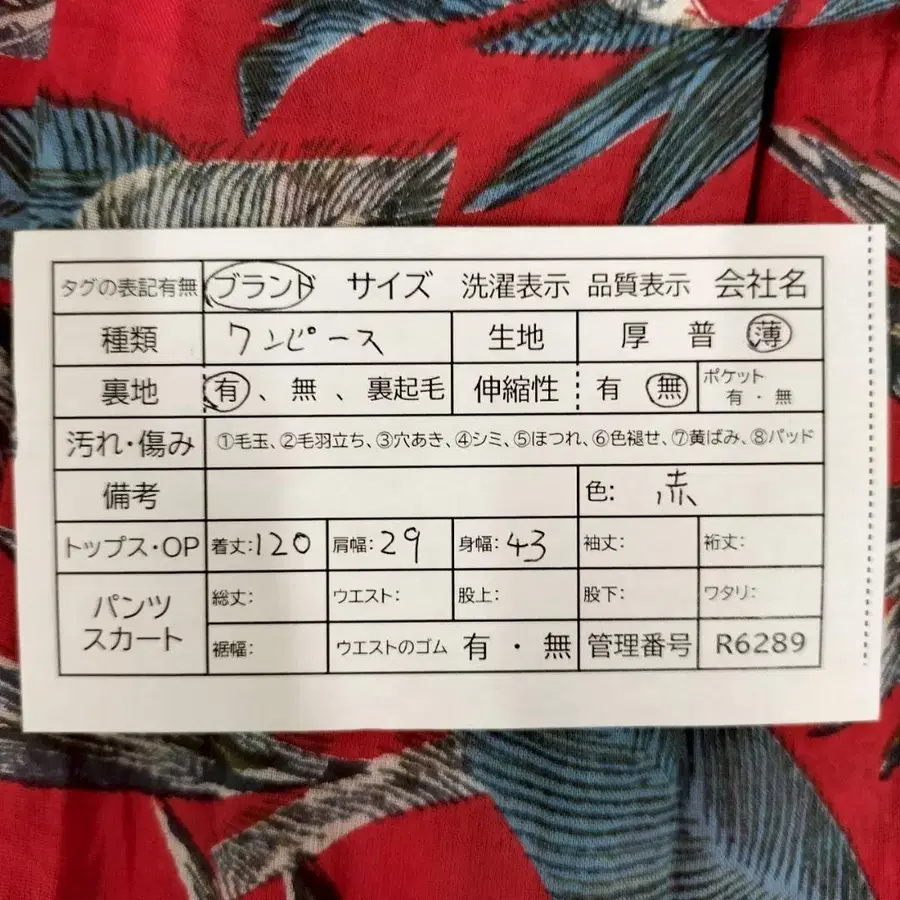 タグの表記有無 ブランド サイズ 洗濯表示 品質表示 会社名
種類 ワンピース 生地 厚 普 薄
裏地 有、無、裏起毛 伸縮性 有 無 ポケット 有・無
汚れ・傷み ①毛玉、②毛羽立ち、③穴あき、④シミ、⑤ほつれ、⑥色褪せ、⑦黄ばみ、⑧パッド
備考 色: 赤
トップス・OP 着丈:120 肩幅:29 身幅:43 袖丈: 裄丈:
パンツ スカート 総丈: ウエスト: 股上: 股下: ワタリ:
裾幅: ウエストのゴム 有・無 管理番号 R6289